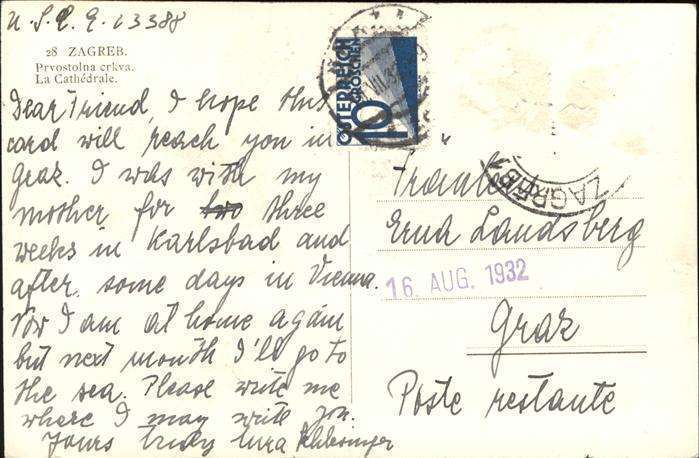 28 ZAGREB.
Prvostolna crkva.
La Cathédrale.
Dear Friend, I hope this
card will reach you in
Graz. I was with my
mother for two three
weeks in Karlsbad and
after some days in Vienna.
Now I am at home again
but next month I'll go to
the sea. Please write me
where I may write you.
Yours truly Schlesinger
ÖSTERREICH
10 GROSCHEN
ZAGREB
Erna Landsberg
16. AUG. 1932
Graz
Poste restante